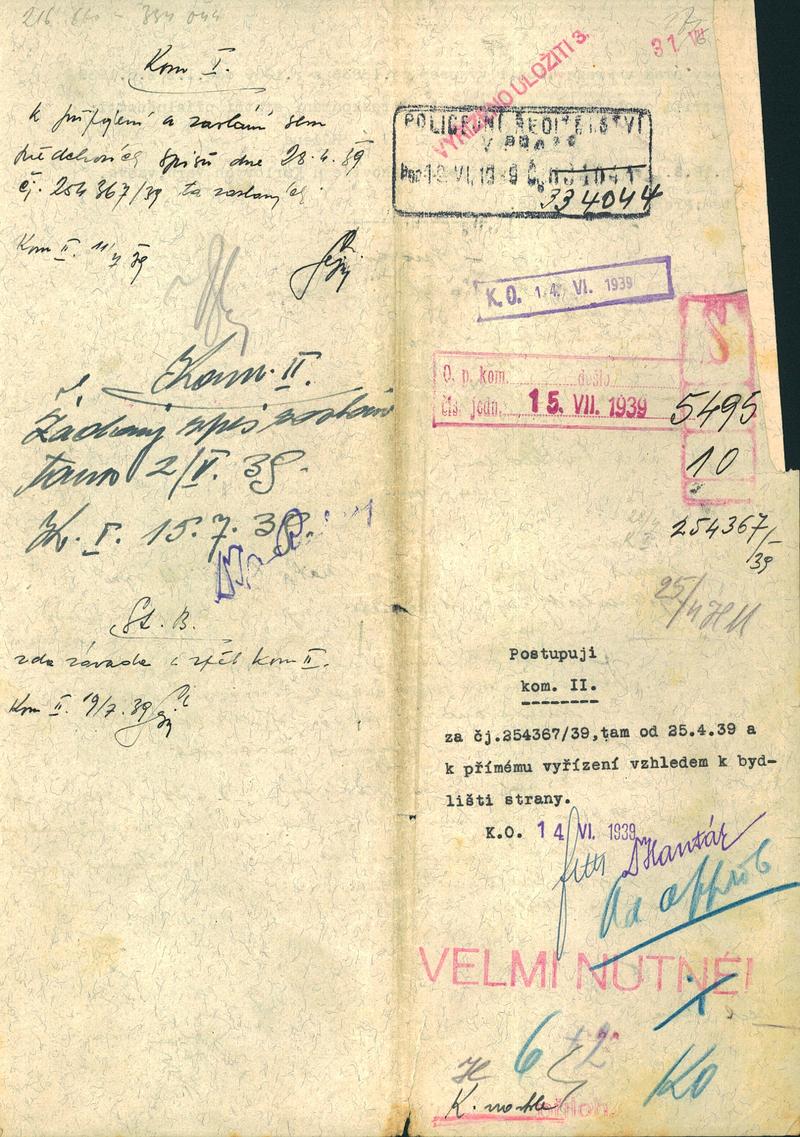 Kom I.
k připojení a zaslání sem
předchozích spisů dne 28.4.39
čj. 254367/39 ta zaslaných
Kom II. 11/7 39
Kom. II.
Žádaný spis zaslán
tam 2/V. 39.
K. I. 15.7.39.
St. B.
zda závada a zpět kom II.
Kom II. 19/7.39
31 VII
VYŘÍZENO ULOŽITI 3.
POLICEJNÍ ŘEDITELSTVÍ
V PRAZE
VI. 1939 Č.
334044
K. O. 14. VI. 1939
S
O. p. kom. došlo
čís. jedn. 15. VII. 1939 5495
10
254367/
39
25/4
Postupuji
kom. II.
za čj.254367/39,tam od 25.4.39 a
k přímému vyřízení vzhledem k byd-
lišti strany.
K.O. 14 VI. 1939
Ad approb
VELMI NUTNÉ!
6 +2
K0
příloh.